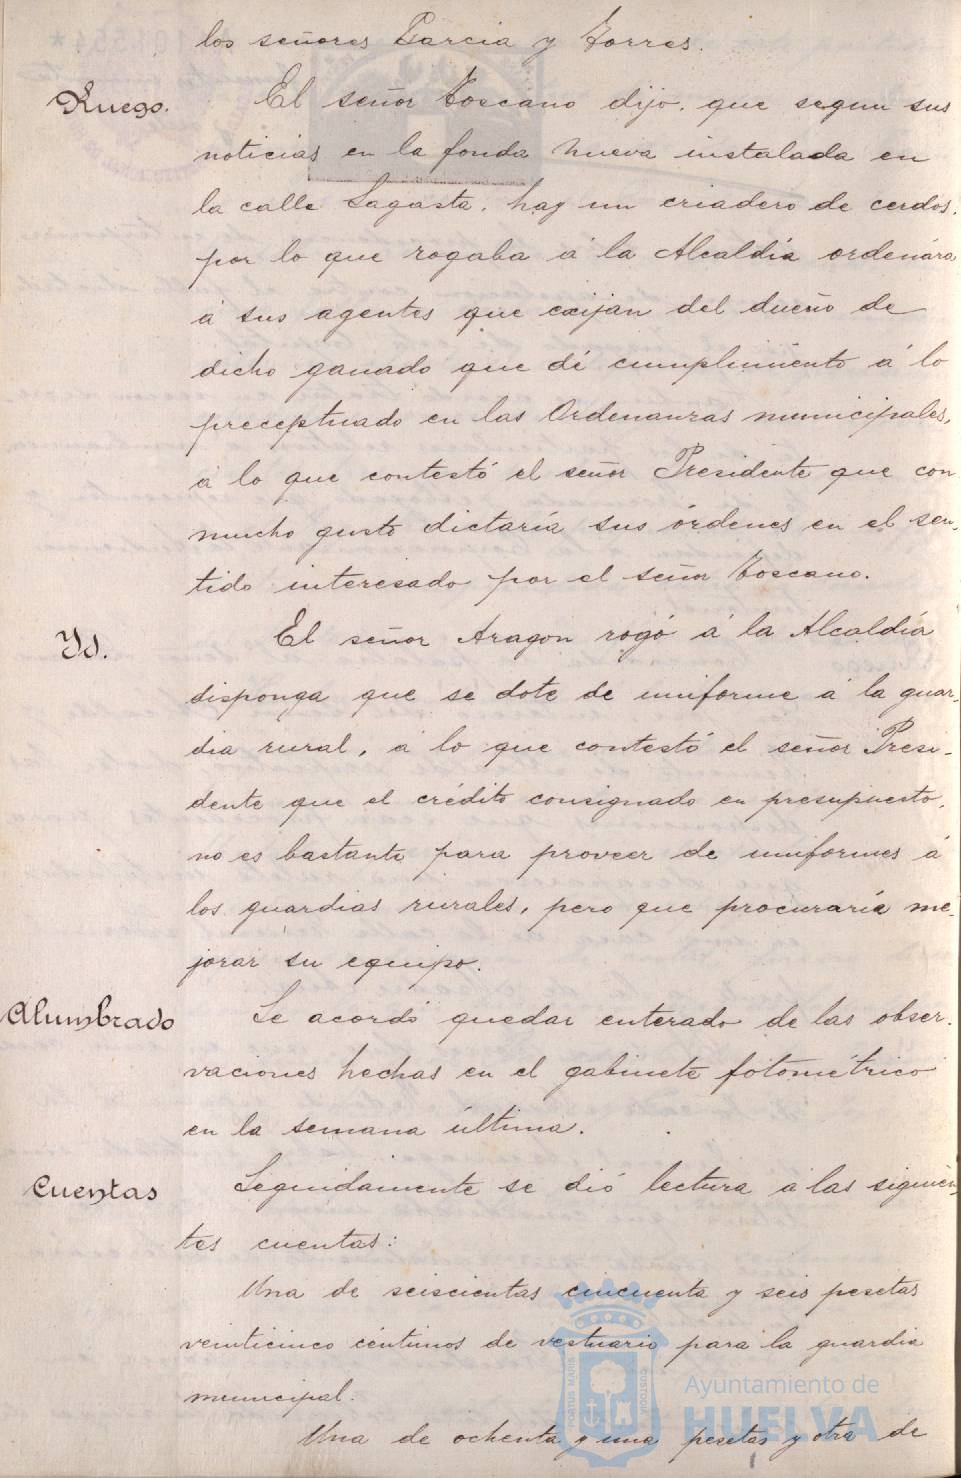 los señores Garcia y Torres.
Ruego.
El señor Toscano dijo, que segun sus
noticias en la fonda nueva instalada en
la calle Sagasta, hay un criadero de cerdos,
por lo que rogaba á la Alcaldía ordenára
á sus agentes que exijan del dueño de
dicho ganado que dé cumplimiento á lo
preceptuado en las Ordenanzas municipales,
á lo que contestó el señor Presidente que con
mucho gusto dictaría sus órdenes en el sen-
tido interesado por el señor Toscano.
Yd.
El señor Aragon rogó á la Alcaldía
disponga que se dote de uniforme á la guar-
dia rural, á lo que contestó el señor Presi-
dente que el crédito consignado en presupuesto,
no es bastante para proveer de uniformes á
los guardias rurales, pero que procuraría me-
jorar su equipo.
Alumbrado
Se acordó quedar enterado de las obser-
vaciones hechas en el gabinete fotométrico
en la semana última.
Cuentas
Seguidamente se dió lectura á las siguien-
tes cuentas:
Una de seiscientas cincuenta y seis pesetas
veinticinco céntimos de vestuario para la guardia
municipal.
Una de ochenta y una pesetas y otra de
PORTUS MARIS
CUSTODIA
Ayuntamiento de
HUELVA